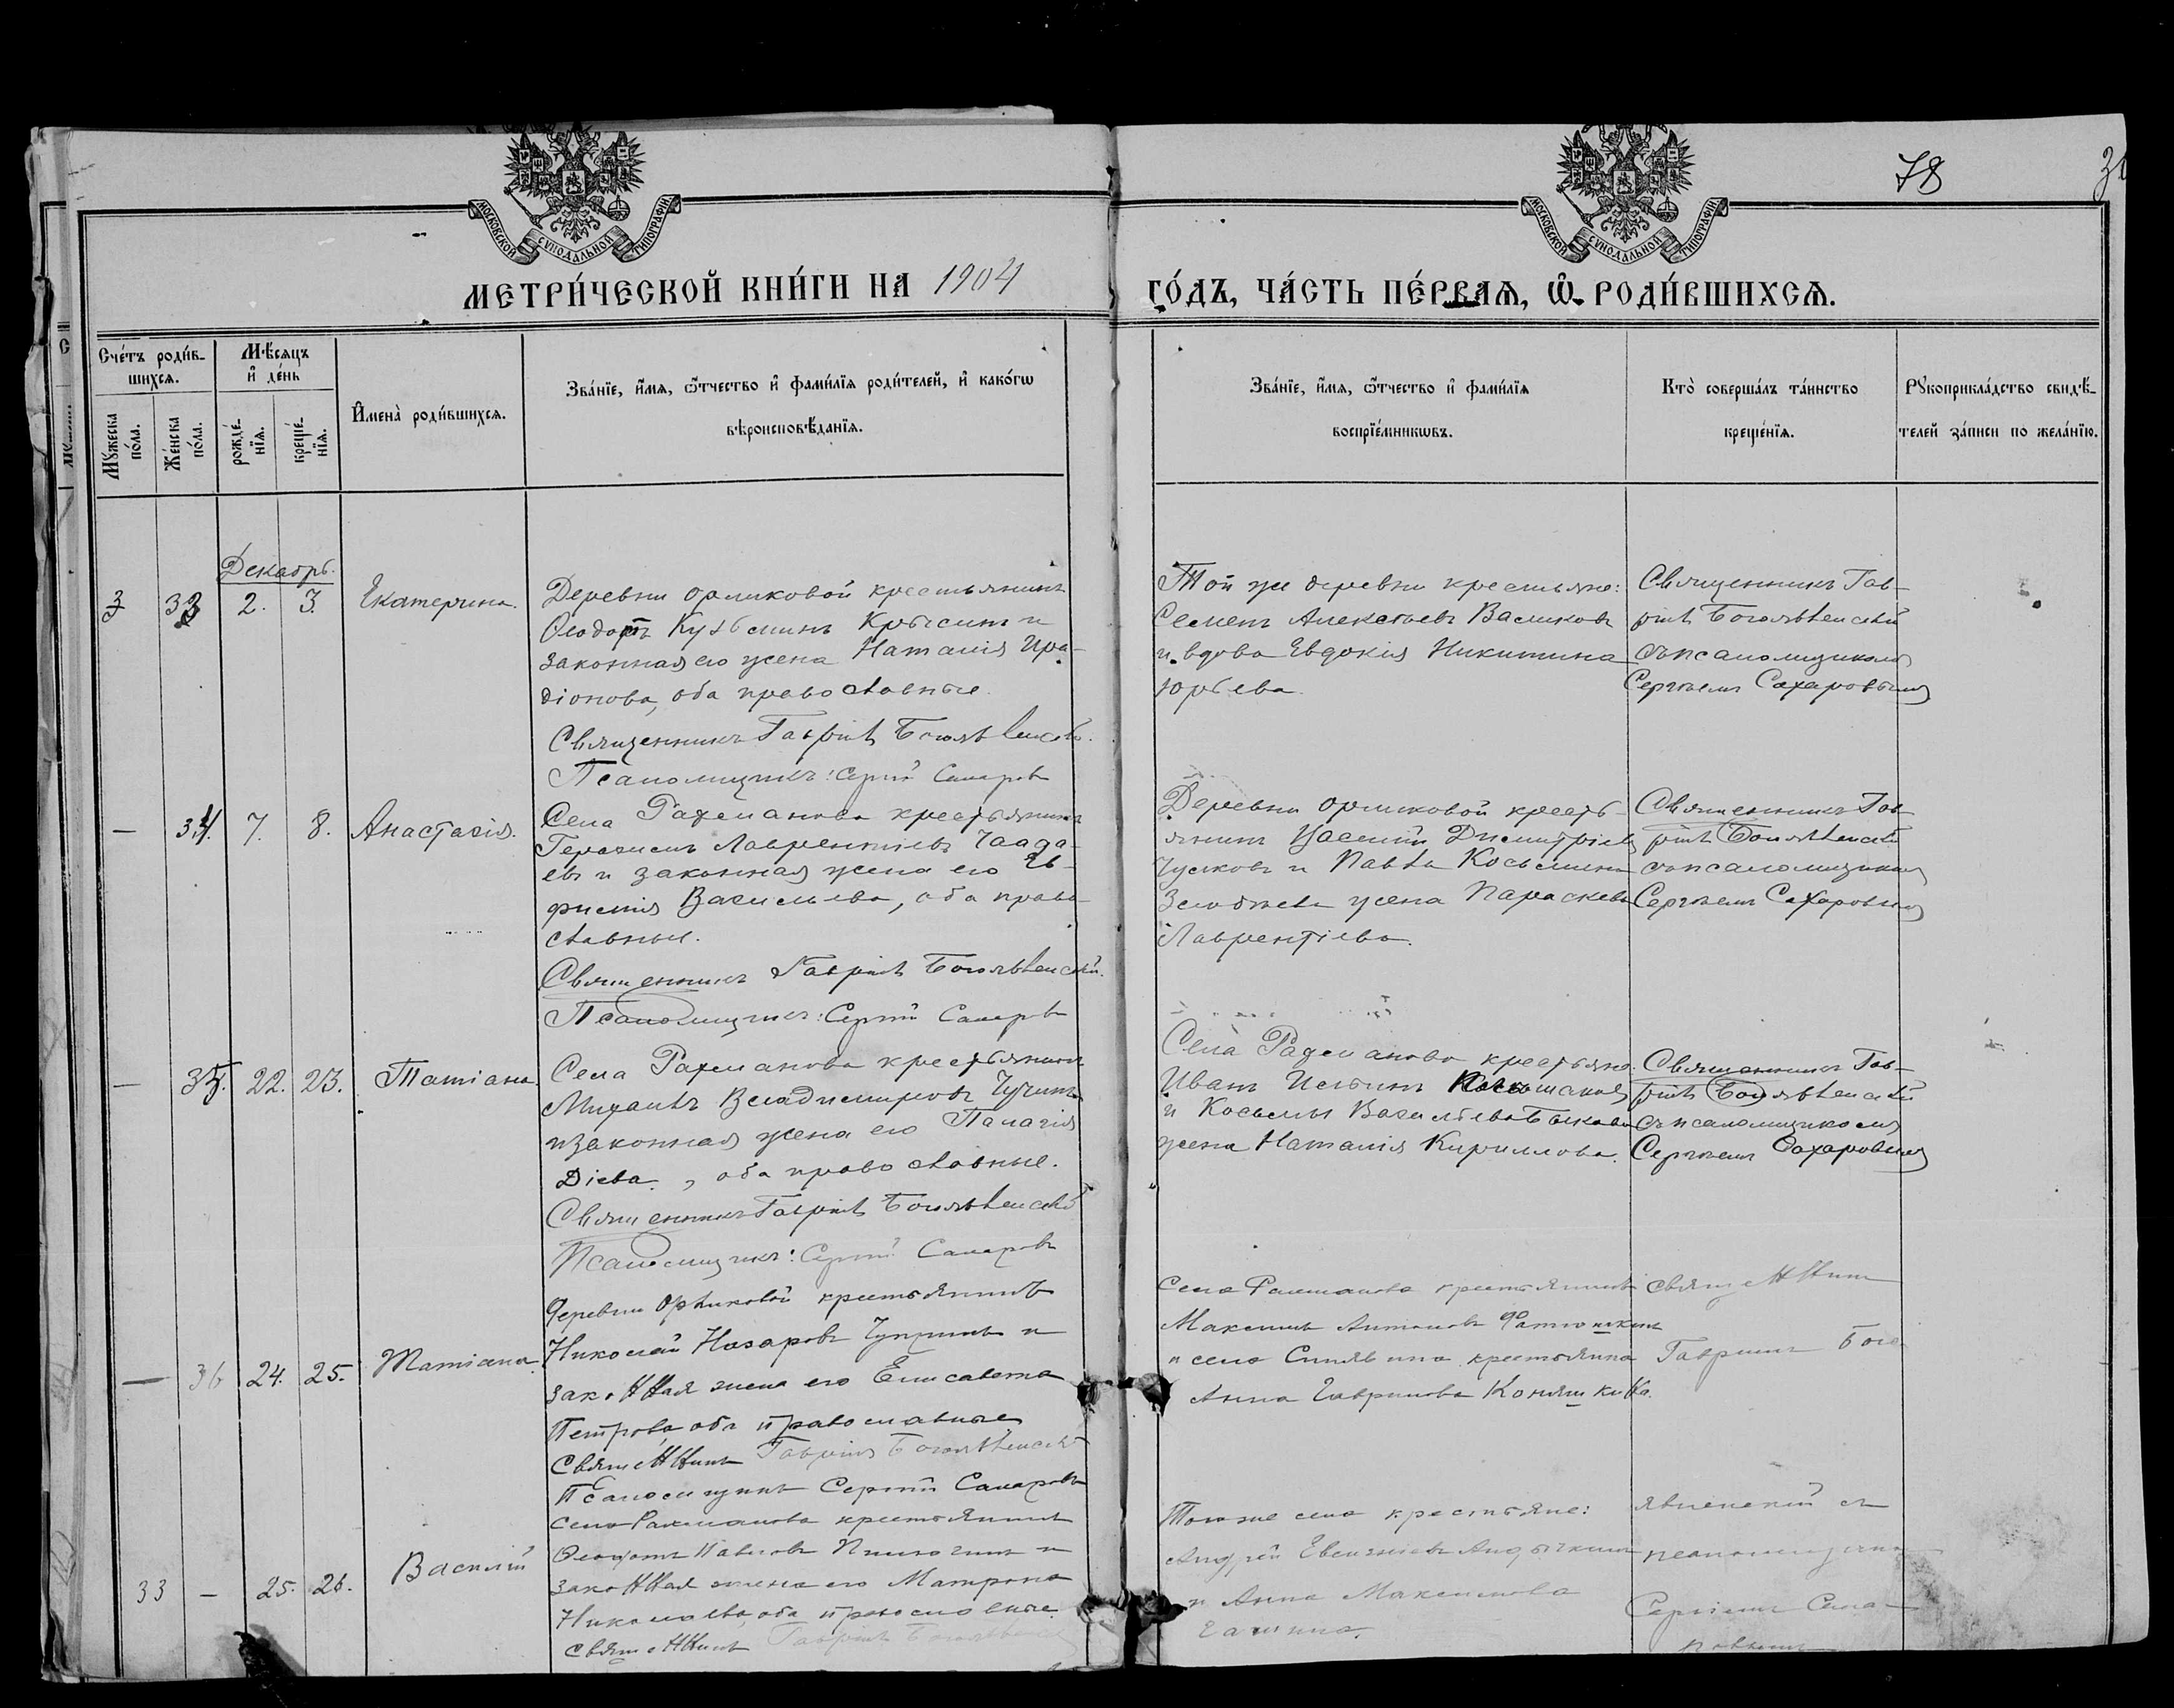 МОСКОВСКОЙ СѴНОДАЛЬНОЙ ТИПОГРАФІИ
МОСКОВСКОЙ СѴНОДАЛЬНОЙ ТИПОГРАФІИ
78
МЕТРИ́ЧЕСКОЙ КНИ́ГИ НА 1904
ГО́ДЪ, ЧА́СТЬ ПЕ́РВАѦ, Ѡ҆ РОДИ́ВШИХСѦ.
Сче́тъ роди́в-
шихсѧ.
Мꙋ́жеска по́ла.
Же́нска по́ла.
Мѣ́сѧцъ
и҆ де́нь
рожде́-
нїѧ.
креще́-
нїѧ.
И҆мена̀ роди́вшихсѧ.
Зва́нїе, и҆́мѧ, ѻ҆́тчество и҆ фами́лїѧ роди́телей, и҆ како́гѡ
вѣроисповѣ́данїѧ.
Зва́нїе, и҆́мѧ, ѻ҆́тчество и҆ фами́лїѧ
воспрїе́мникѡвъ.
Кто̀ соверша́лъ та́инство
креще́нїѧ.
Рꙋкоприкла́дство свидѣ́-
телей за́писи по жела́нїю.
Декабрь.
33 2. 3. Екатерина.
Деревни Орликовой крестьянинъ
Ѳеодоръ Кузьминъ и
законная его жена Наталія Ира-
діонова, оба православные.
Священникъ Гавріилъ Богоявленскій.
Псаломщикъ: Сергій Сахаровъ
Той же деревни крестьяне:
Семенъ Алексѣевъ Васильковъ
и вдова Евдокія Никитина
Юрьева.
Священникъ Гав-
ріилъ Богоявленскій
съ псаломщикомъ
Сергѣемъ Сахаровымъ
— 34. 7. 8. Анастасія.
Села Рахманова крестьянинъ
Герасимъ Лаврентіевъ Чаада-
евъ и законная жена его Ев-
фимія Васильева, оба право-
славные.
Священникъ Гавріилъ Богоявленскій.
Псаломщикъ: Сергій Сахаровъ
Деревни Орликовой кресть-
янинъ Василій Димитріевъ
и Павла Косьмина
жена Параскева
Лаврентіева.
Священникъ Гав-
ріилъ Богоявленскій
съ псаломщикомъ
Сергѣемъ Сахаровымъ
— 35. 22. 23. Татіана
Села Рахманова крестьянинъ
Михаилъ Владимировъ
и законная жена его Пелагія
Діева, оба православные.
Священникъ Гавріилъ Богоявленскій
Псаломщикъ: Сергій Сахаровъ
Села Рахманова крестьяне
Иванъ Ильинъ
и Косьмы Васильева Быкова
жена Наталія Кириллова.
Священникъ Гав-
ріилъ Богоявленскій
съ псаломщикомъ
Сергѣемъ Сахаровымъ
— 36 24. 25. Татіана.
Деревни Орликовой крестьянинъ
Николай Назаровъ Чупринъ и
законная жена его Елисавета
Петрова оба православные
Священникъ Гавріилъ Богоявленскій
Псаломщикъ Сергій Сахаровъ
Села Рахманова крестьянинъ
Максимъ Антоновъ
и села Синявина крестьянка
Анна Гаврилова Коняшкина.
Священникъ
Гавріилъ Бого-
33 — 25. 26. Василій
Села Рахманова крестьянинъ
Павловъ и
законная жена его Матрона
Николаева, оба православные.
Священникъ Гавріилъ Богоявленскій
Того же села крестьяне:
Андрей Евгеніевъ
и Анна Максимова
явленскій съ
псаломщикомъ
Сергіемъ Саха-
ровымъ